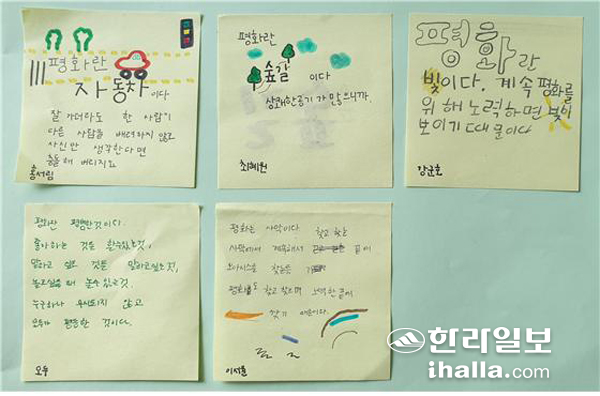 평화란
자동차이다
잘 가더라도 한 사람이
다른 사람을 배려하지 않고
자신만 생각한다면
충돌해 버리지요
홍서림
평화란
숲길이다
상쾌한 공기가 많으니까.
최혜원
평화란
빛이다. 계속 평화를
위해 노력하면 빛이
보이기 때문이다
강군호
평화란 평등한것이다.
좋아하는 것을 할수있는것,
말하고 싶은 것을 말하고싶은것,
놀고싶을 때 놀수 있는것.
누군하나 무시되지 않고
모두가 평등한 것이다.
모두
평화는 사막이다 찾고 찾는
사막에서 계속해서 끝에
오아시스를 찾는
평화도 찾고 찾으며 노력한 끝에
찾기 때문이다.
이서훈
한라일보
ihalla.com